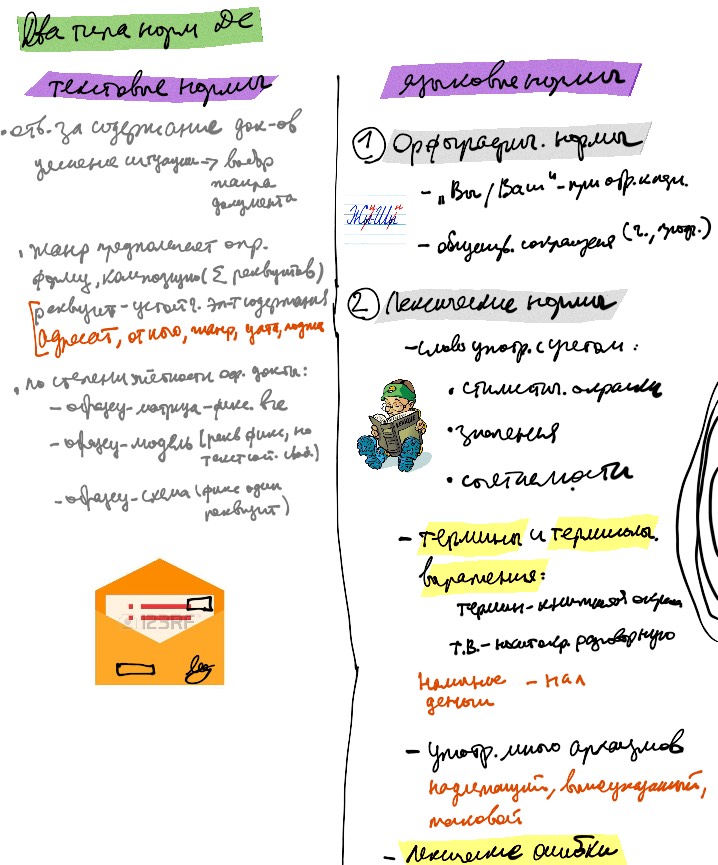 Два типа норм ДС
текстовые нормы
• отв. за содержание док-ов
изменение ситуации → выбор
жанра
документа
• жанр предполагает опр.
форму, композицию (Σ реквизитов)
реквизит - устойч. эл-т содержания
адресат, от кого, жанр, дата, подпись
• по степени жёсткости обр. докты:
- образец-матрица - фикс. все
- образец-модель (рекв фикс, но
текст сост. своб.)
- образец-схема (фикс один
реквизит)
123RF
языковые нормы
1 Орфографич. нормы
- „Вы / Ваш" - при обр. к
ЖиШи
- общеуп. сокращения (г., проф.)
2 Лексические нормы
- слово употр. с учетом:
• стилистич. окраски
• значения
• сочетаемости
- термины и терминолог.
выражения:
термин - книжной окраски
Т.В. - разговорную
наличные - нал
деньги
- употр. много архаизмов
надлежащий, вышеуказанный,
таковой
- лексические ошибки